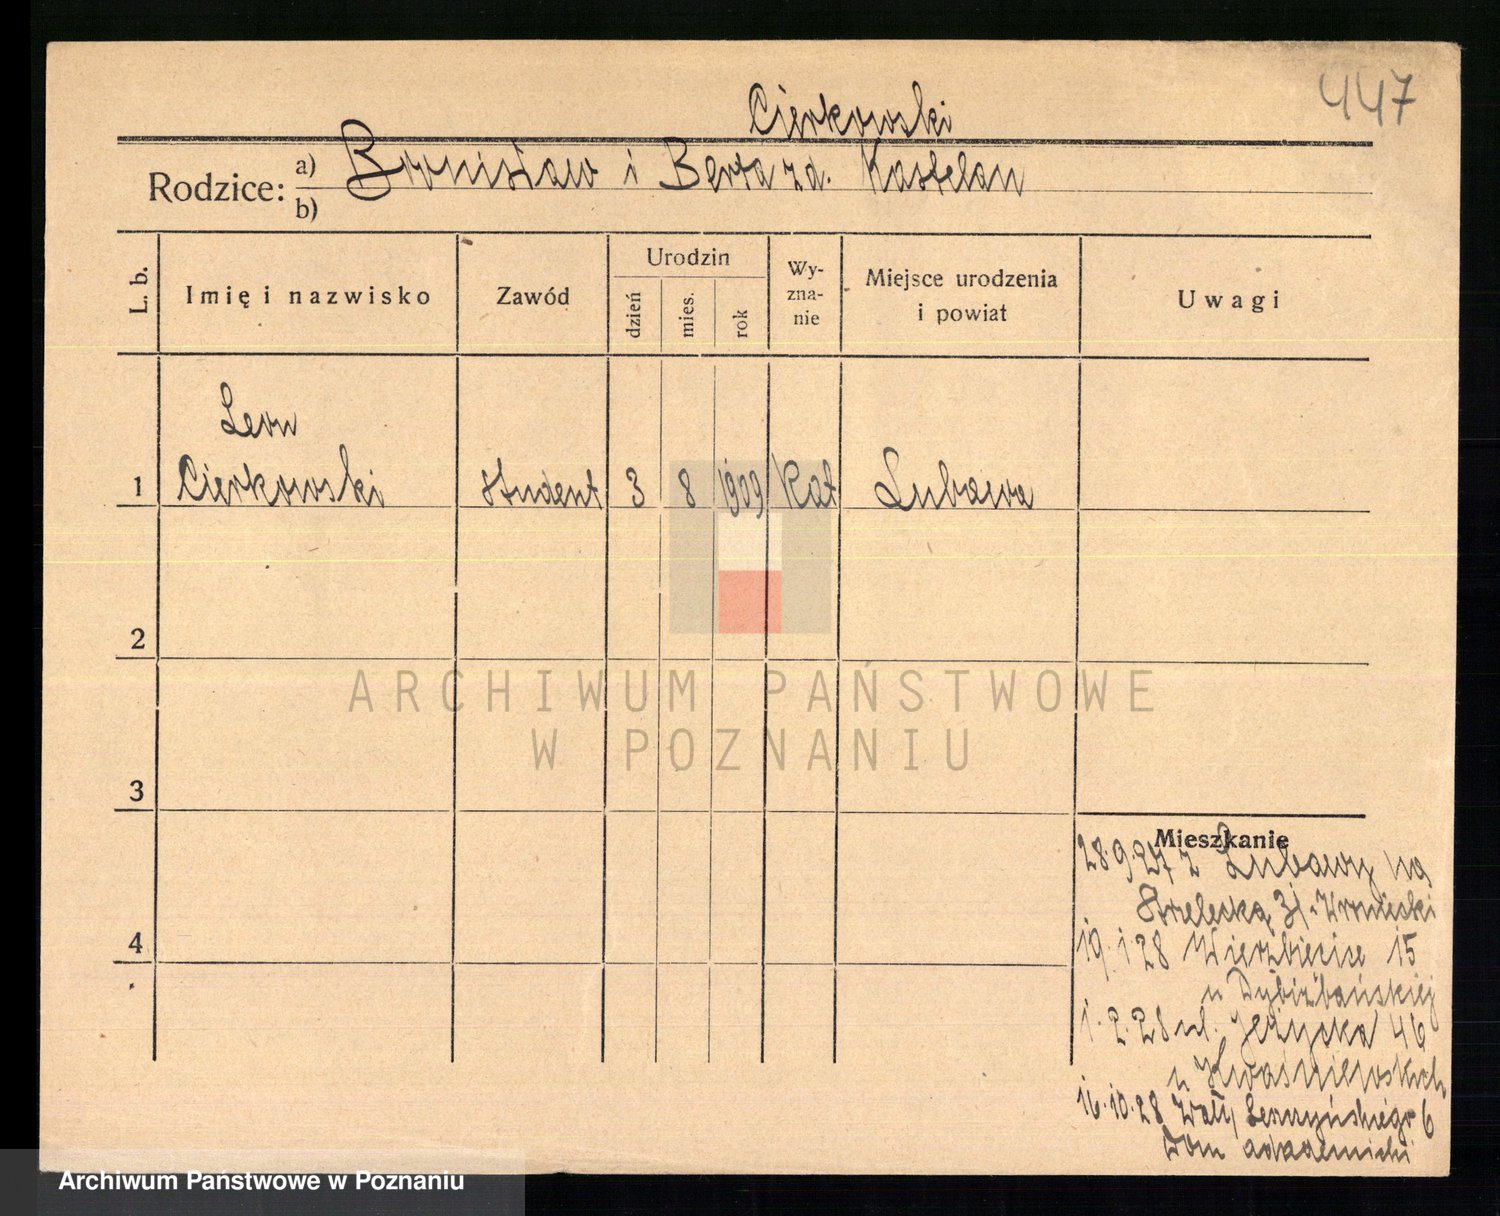 447
Cierkowski
Rodzice: a) Bronisław i Berta zd. Kastelan
b)
L. b. Imię i nazwisko Zawód Urodzin dzień mies. rok Wy-zna-nie Miejsce urodzenia i powiat Uwagi
Leon
1 Cierkowski student 3 8 1909 Kat Lubawa
2
ARCHIWUM PAŃSTWOWE
W POZNANIU
3
Mieszkanie
28.9.27 z Lubawy na
Strzelecką 31
19.1 28 Wierzbięcice 15
u
1.2.28 ul. Jeżycka 46
u Kwaśniewskich
4
16.10.28 Wały Leszczyńskiego 6
Dom akademicki
Archiwum Państwowe w Poznaniu